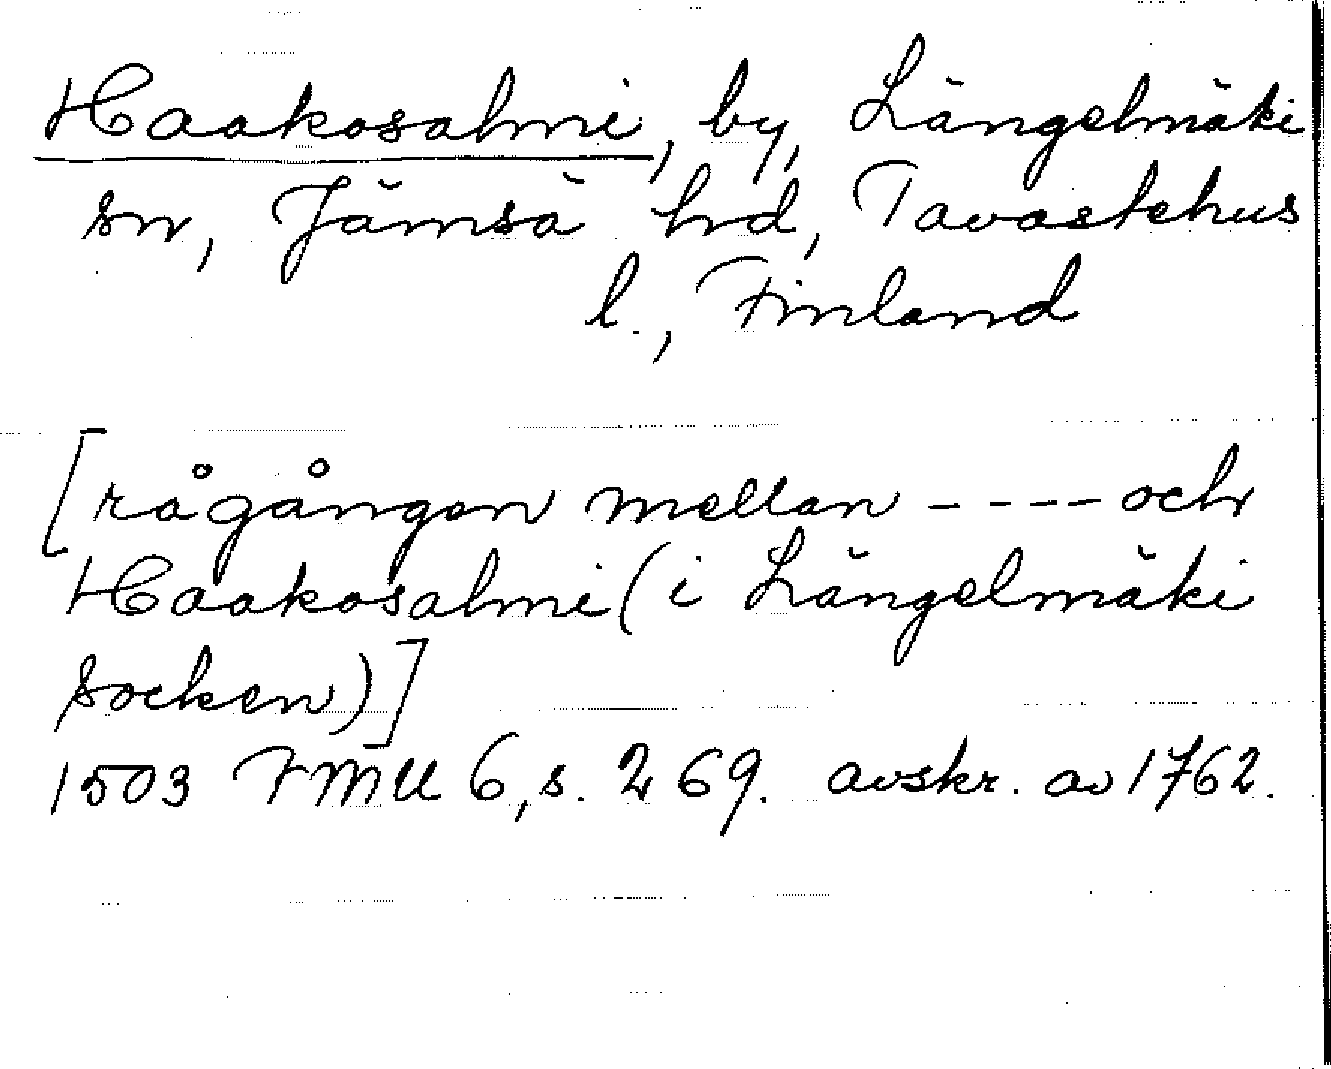 Haakosalmi, by, Längelmäki
sn, Jämsä hrd, Tavastehus
l., Finland
[rågången mellan ---- och
Haakosalmi (i Längelmäki
socken)]
1503 FMU 6, s. 269. avskr. av 1762.